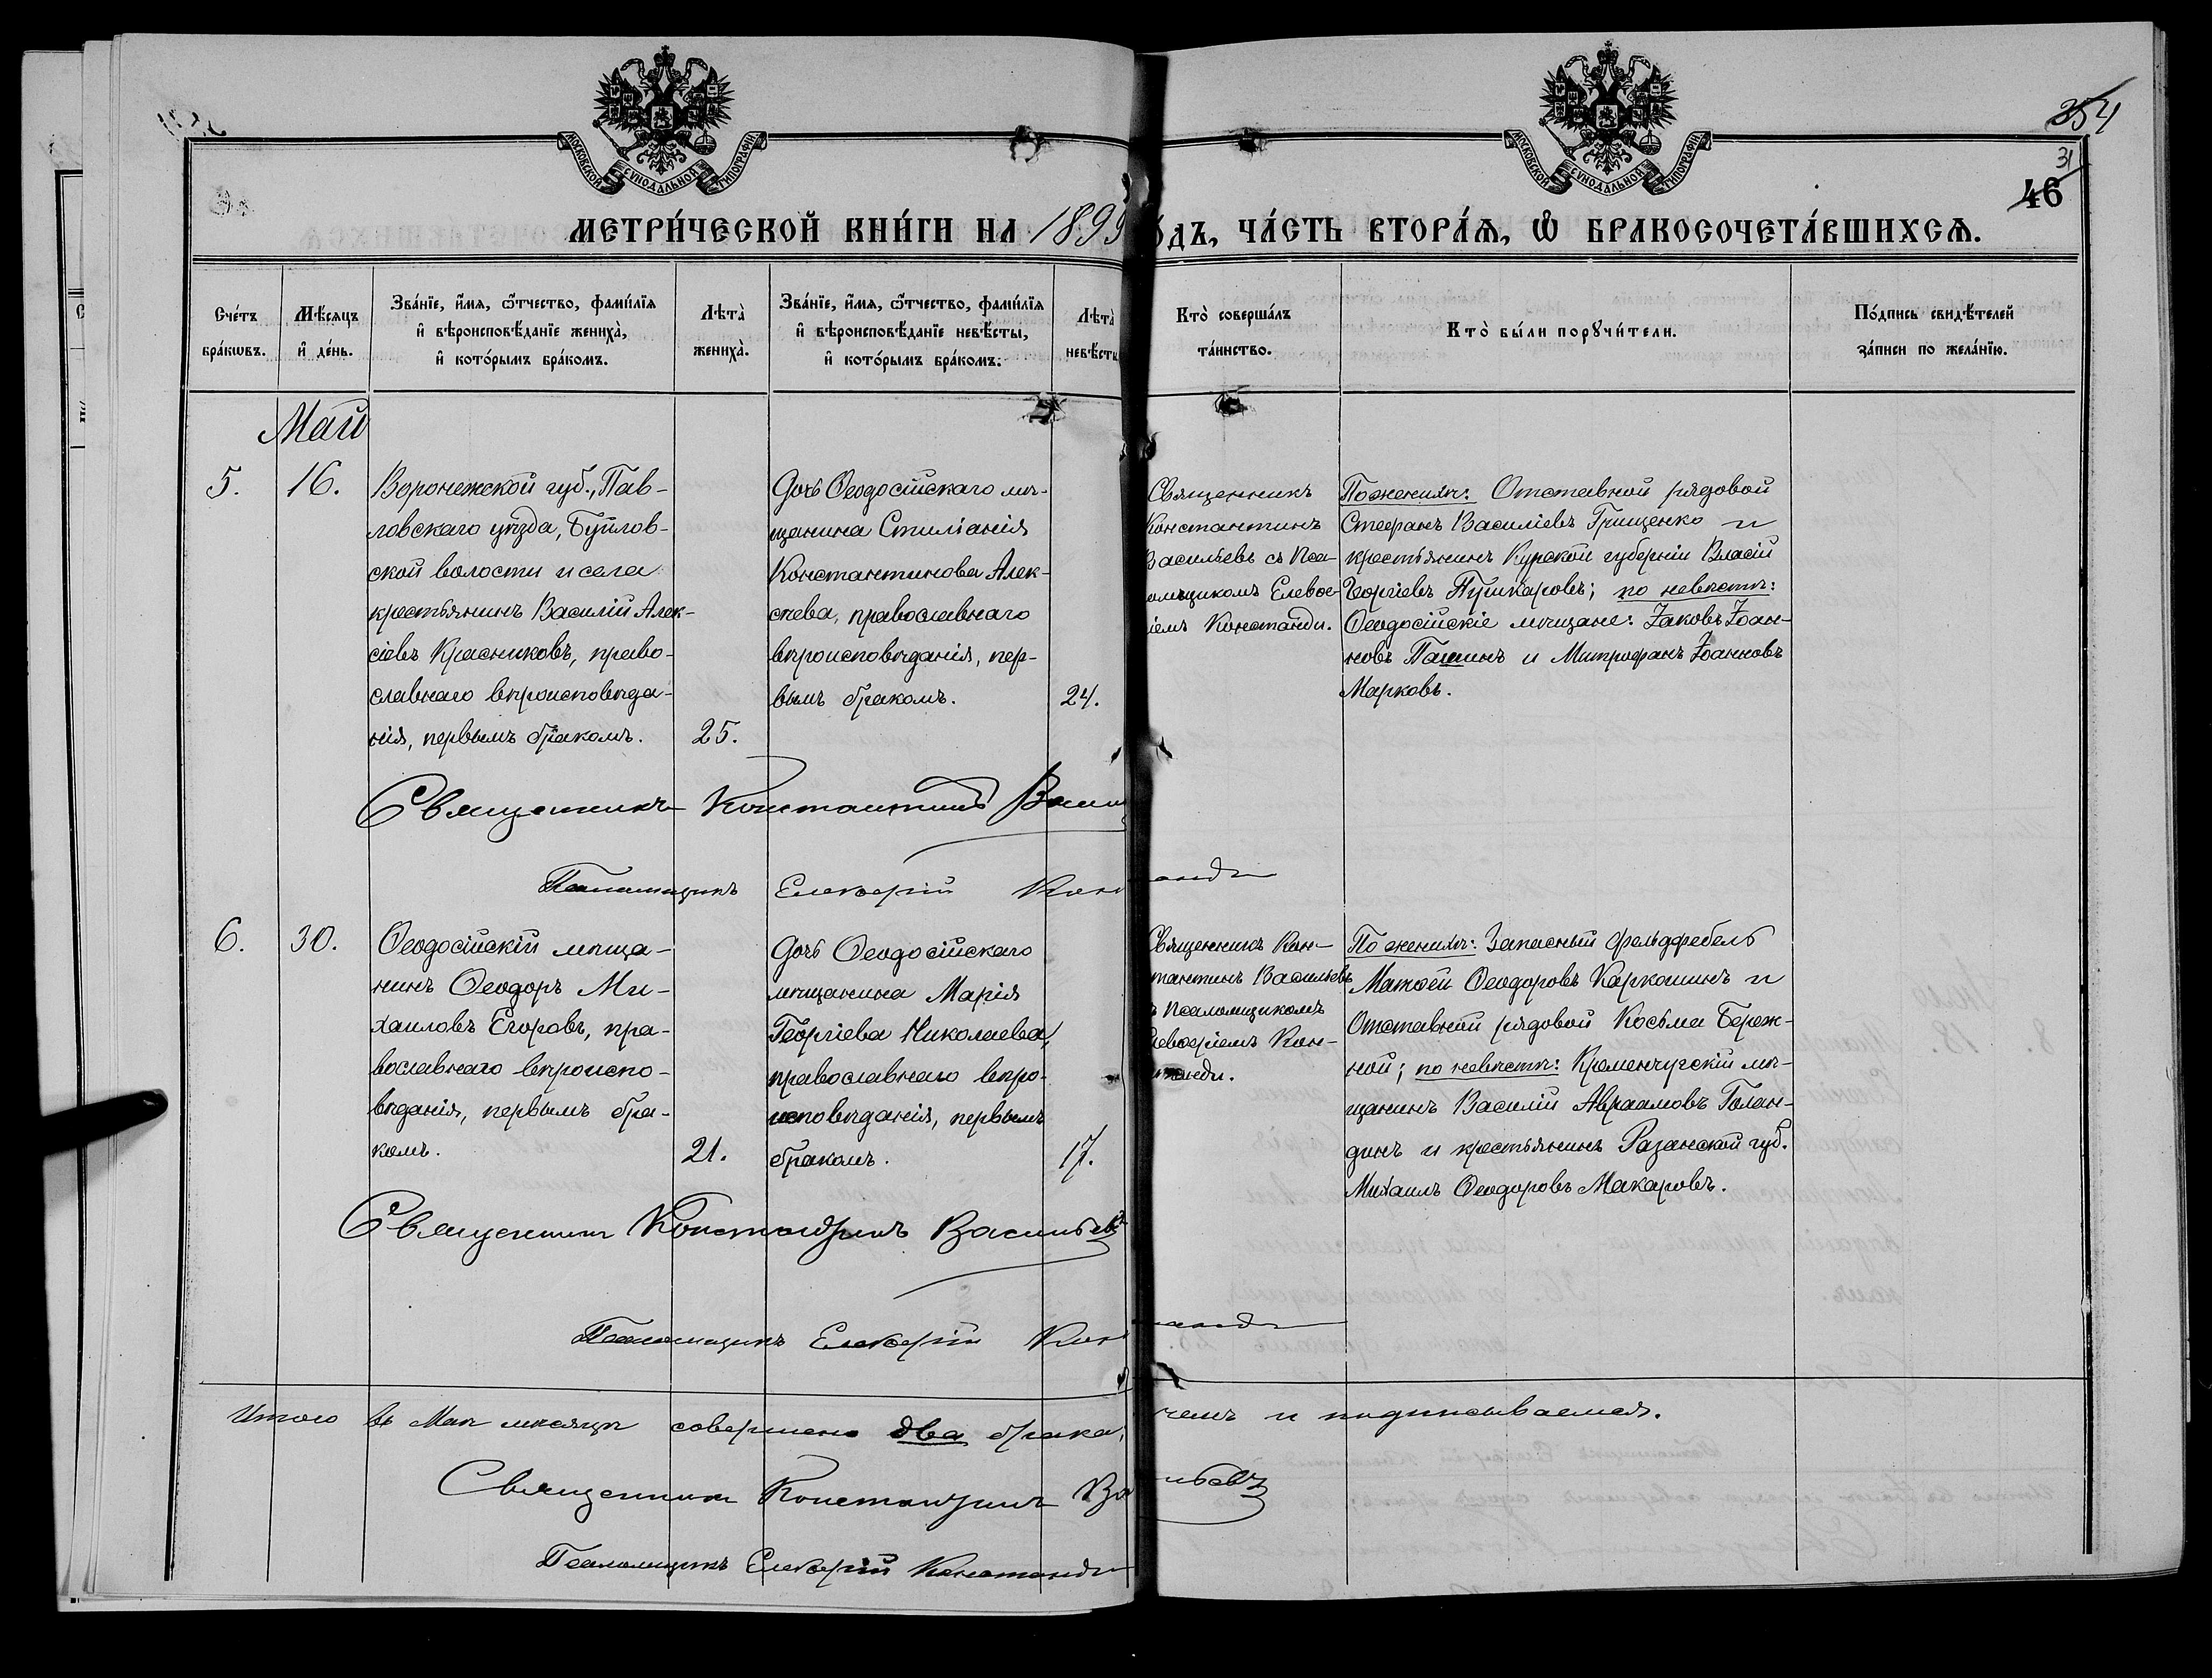 254
31
46
МОСКОВСКОЙ СѴНОДАЛЬНОЙ ТИПОГРАФІИ
МОСКОВСКОЙ СѴНОДАЛЬНОЙ ТИПОГРАФІИ
МЕТРИ́ЧЕСКОЙ КНИ́ГИ НА 1899
о́дъ, ЧА́СТЬ ВТОРА́Ѧ, Ѡ҆ БРАКОСОЧЕТА́ВШИХСѦ.
Сче́тъ
бра́кѡвъ.
Мѣ́сяцъ
и҆ де́нь.
Зва́нїе, и҆́мя, ѻ҆́тчество, фами́лїя
и҆ вѣроисповѣ́данїе жениха̀,
и҆ кото́рымъ бра́комъ.
Лѣта̀
жениха̀.
Зва́нїе, и҆́мя, ѻ҆́тчество, фами́лїя
и҆ вѣроисповѣ́данїе невѣ́сты,
и҆ кото́рымъ бра́комъ.
Лѣта̀
невѣ́сты
Кто̀ соверша́лъ
та́инство.
Кто̀ бы́ли порꙋчи́тели.
По́дпись свидѣ́телей
за́писи по жела́нїю.
Май
5.
16.
Воронежской губ., Пав-
ловскаго уѣзда, Буйлов-
ской волости и села
крестьянинъ Василій Алек-
сіевъ Красниковъ, право-
славнаго вѣроисповѣда-
нія, первымъ бракомъ.
25.
Дочь Ѳеодосійскаго мѣ-
щанина Стиліанія
Константинова Алек-
сѣева, православнаго
вѣроисповѣданія, пер-
вымъ бракомъ.
24.
Священникъ
Константинъ
Васильевъ съ Пса-
ломщикомъ Елевѳе-
ріемъ Констанди.
По женихѣ: Отставной рядовой
Стефанъ Василіевъ Грищенко и
крестьянинъ Курской губерніи Власій
Георгіевъ Пушкаровъ; по невѣстѣ:
Ѳеодосійскіе мѣщане: Іаковъ Іоан-
новъ Пашинъ и Митрофанъ Іоанновъ
Марковъ.
Священникъ Константинъ Васил
Псаломщикъ Елевѳерій Кон анди
6.
30.
Ѳеодосійскій мѣща-
нинъ Ѳеодоръ Ми-
хаиловъ Егоровъ, пра-
вославнаго вѣроиспо-
вѣданія, первымъ бра-
комъ.
21.
Дочь Ѳеодосійскаго
мѣщанина Марія
Георгіева Николаева,
православнаго вѣро-
исповѣданія, первымъ
бракомъ.
17.
Священникъ Кон-
стантинъ Васильевъ
ъ Псаломщикомъ
Елевѳеріемъ Кон-
станди.
По женихѣ: Запасный фельдфебель
Матѳей Ѳеодоровъ Каркошинъ и
Отставной рядовой Косьма Береж-
ной; по невѣстѣ: Кременчугскій мѣ-
щанинъ Василій Авраамовъ Голан-
динъ и крестьянинъ Разанской губ.
Михаилъ Ѳеодоровъ Макаровъ.
Священникъ Константинъ Васильевъ
Псаломщикъ Елевѳерій Кон анди
Итого въ Маѣ мѣсяцѣ совершено два брака,
чемъ и подписываемся.
Священникъ Константинъ Ва ильевъ
Псаломщикъ Елевѳерій Констанди